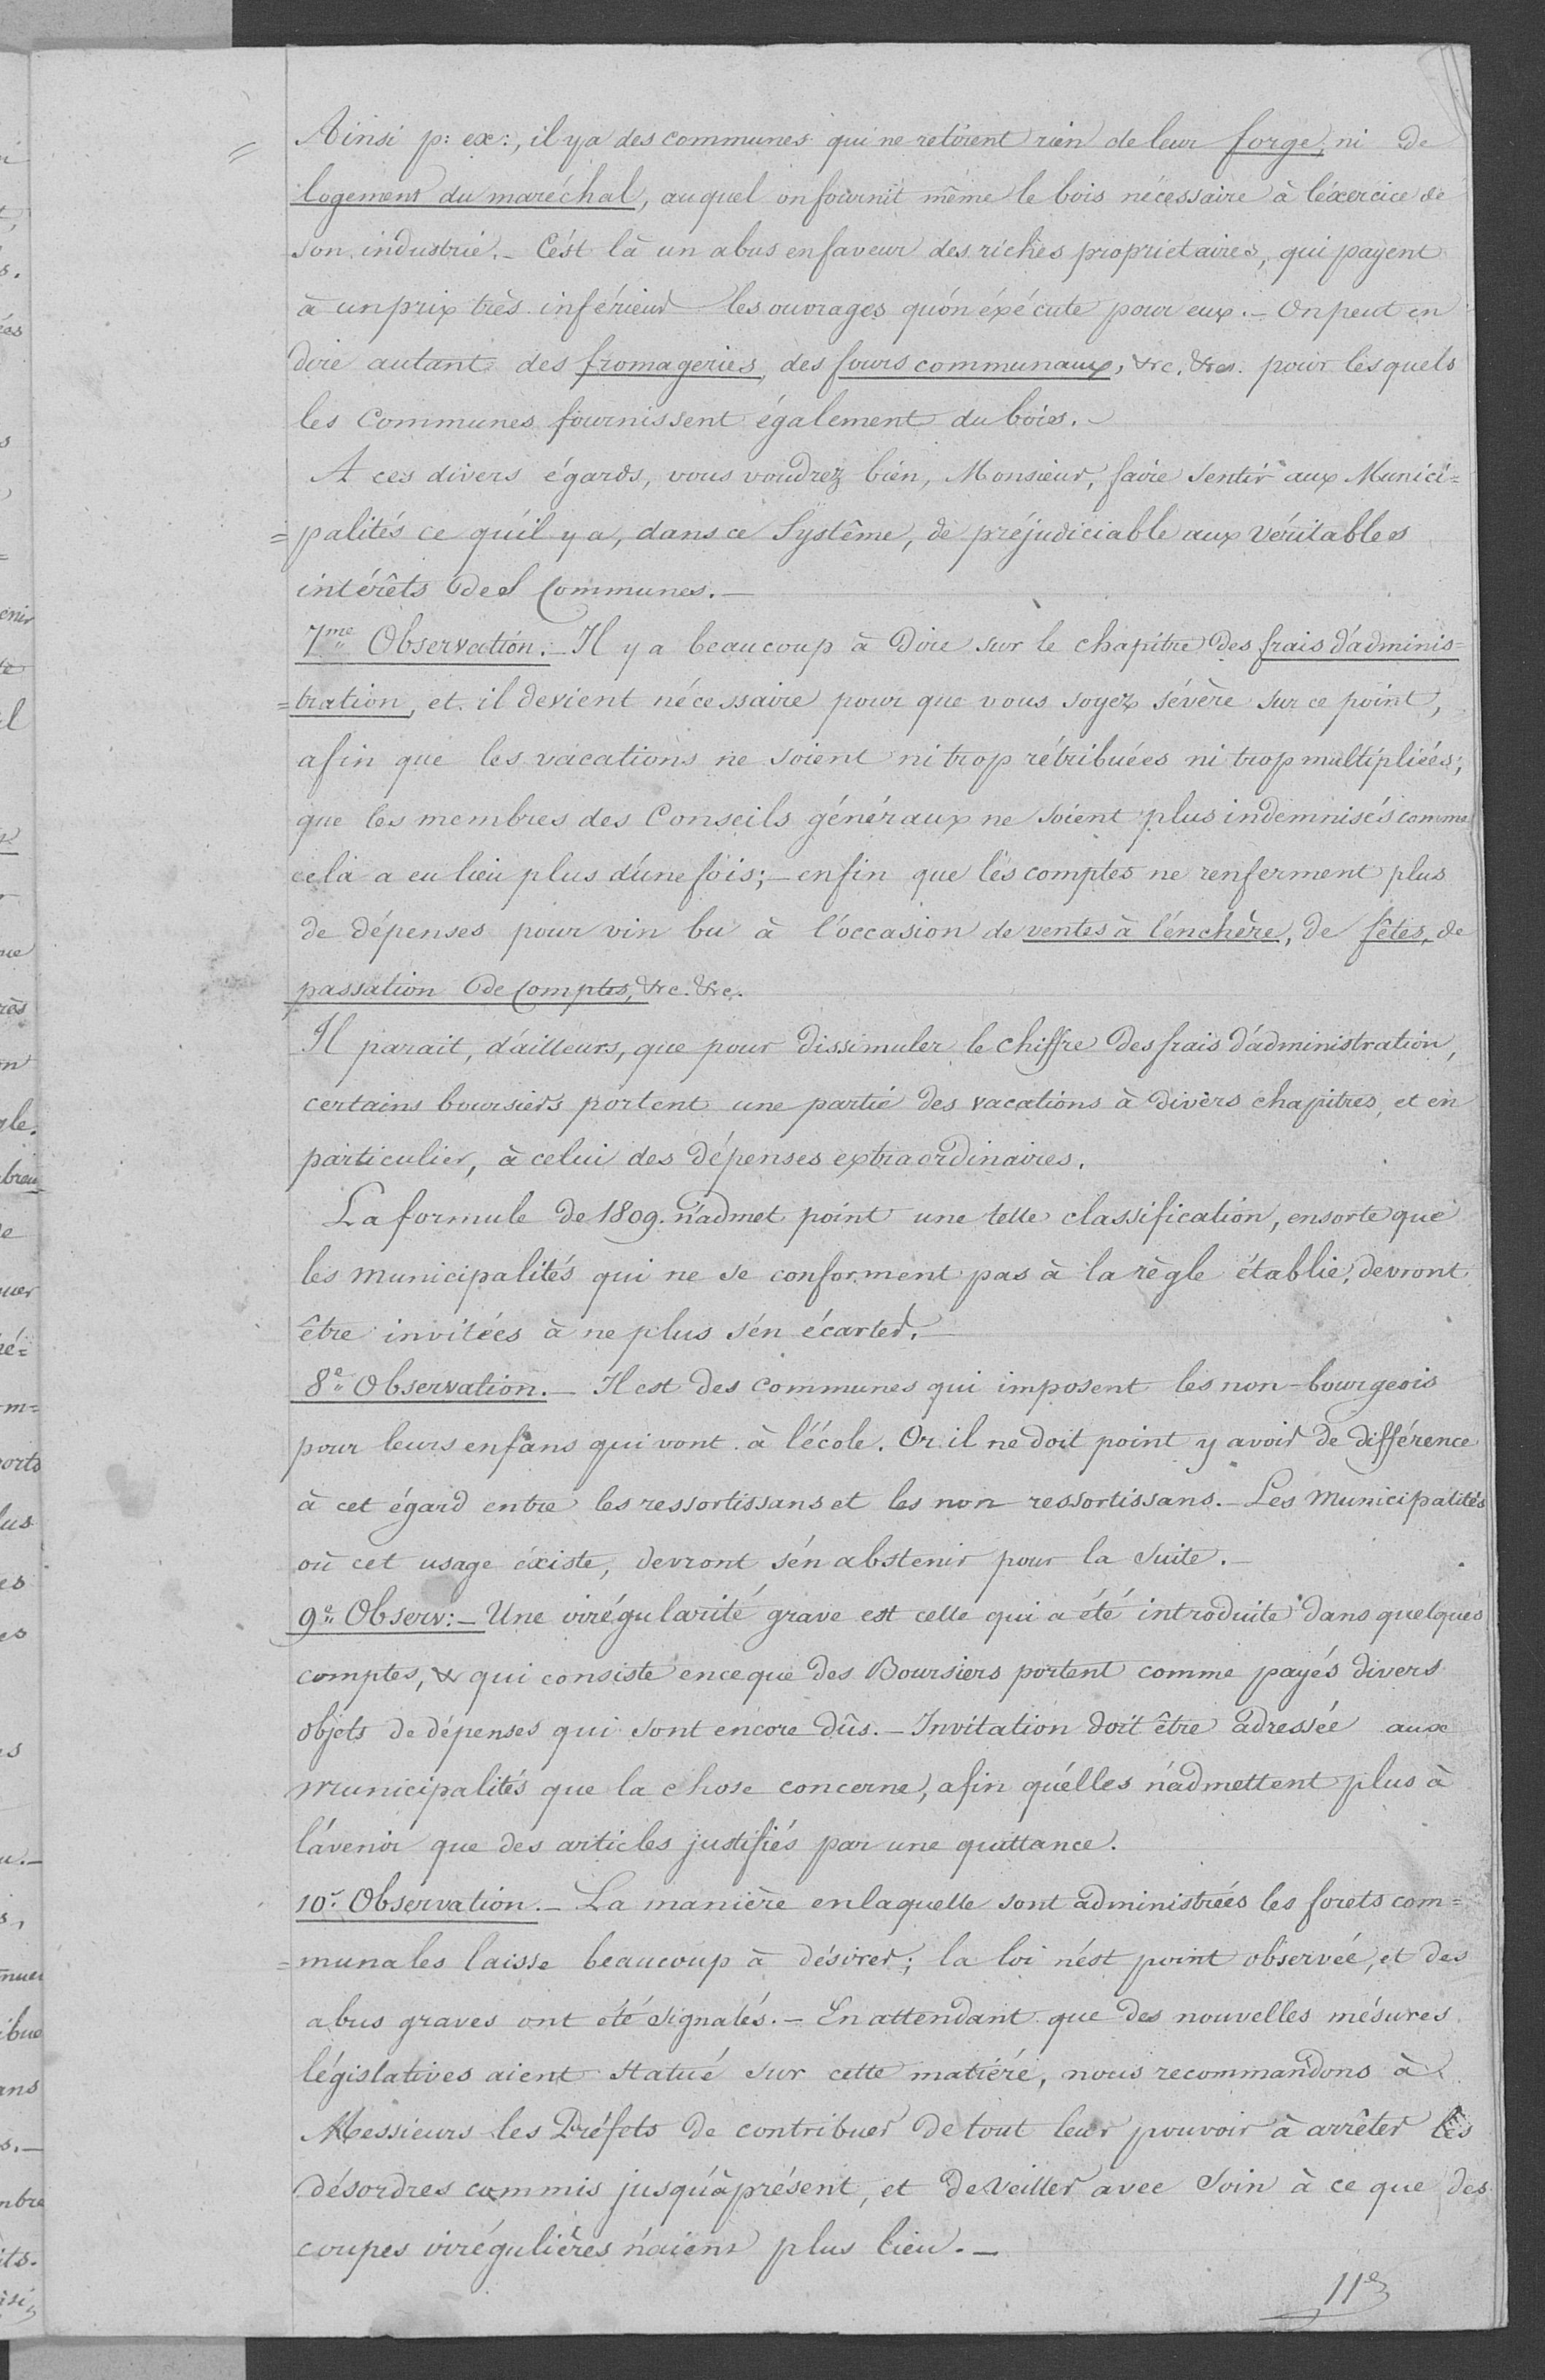 Ainsi p: ex:, il y a des communes qui ne retirent rien de leur forge, ni de
logement du maréchal, auquel on fournit même le bois nécessaire à l'éxercice de
son industrie. – C'est là un abus en faveur des riches propriétaires, qui payent
à un prix très inférieur les ouvrages qu'on éxécute pour eux. – On peut en
dire autant des fromageries, des fours communaux, &c. &c. pour lesquels
les Communes fournissent également du bois. –
A ces divers égards, vous voudrez bien, Monsieur, faire sentir aux Munici=
=palités ce qu'il y a, dans ce Systême, de préjudiciable aux véritables
intérêts des Communes. –
7me Observation. – Il y a beaucoup à dire sur le chapitre des frais d'adminis=
=tration, et il devient nécessaire pour que vous soyez sévère sur ce point,
afin que les vacations ne soient ni trop rétribuées ni trop multipliées;
que les membres des Conseils généraux ne soient plus indemnisés comme
cela a eu lieu plus d'une fois; – enfin que les comptes ne renferment plus
de dépenses pour vin bu à l'occasion de ventes à l'enchère, de fêtes, de
passation de Comptes, &c. &c.
Il parait, d'ailleurs, que pour dissimuler le chiffre des frais d'administration,
certains boursiers portent une partie des vacations à divers chapitres, et en
particulier, à celui des dépenses extraordinaires.
La formule de 1809. n'admet point une telle classification, ensorte que
les municipalités qui ne se conforment pas à la règle établie, devront
être invitées à ne plus s'en écarter. –
8e Observation. – Il est des communes qui imposent les non-bourgeois
pour leurs enfans qui vont à l'école. Or il ne doit point y avoir de différence
à cet égard entre les ressortissans et les non ressortissans. – Les Municipalités
où cet usage éxiste, devront s'en abstenir pour la suite. –
9e Observ: – Une irrégularité grave est celle qui a été introduite dans quelques
comptes, & qui consiste en ce que des Boursiers portent comme payés divers
objets de dépenses qui sont encore dûs. – Invitation doit être adressée aux
municipalités que la chose concerne, afin qu'elles n'admettent plus à
l'avenir que des articles justifiés par une quittance.
10e Observation. – La manière en laquelle sont administrées les forets com=
=munales laisse beaucoup à désirer; la loi n'est point observée, et des
abus graves ont été signalés. – En attendant que des nouvelles mésures
législatives aient statué sur cette matiére, nous recommandons à
Messieurs les Préfets de contribuer de tout leur pouvoir à arrêter les
désordres commis jusqu'à présent, et de veiller avec soin à ce que des
coupes irrégulières n'aient plus lieu. –
11e